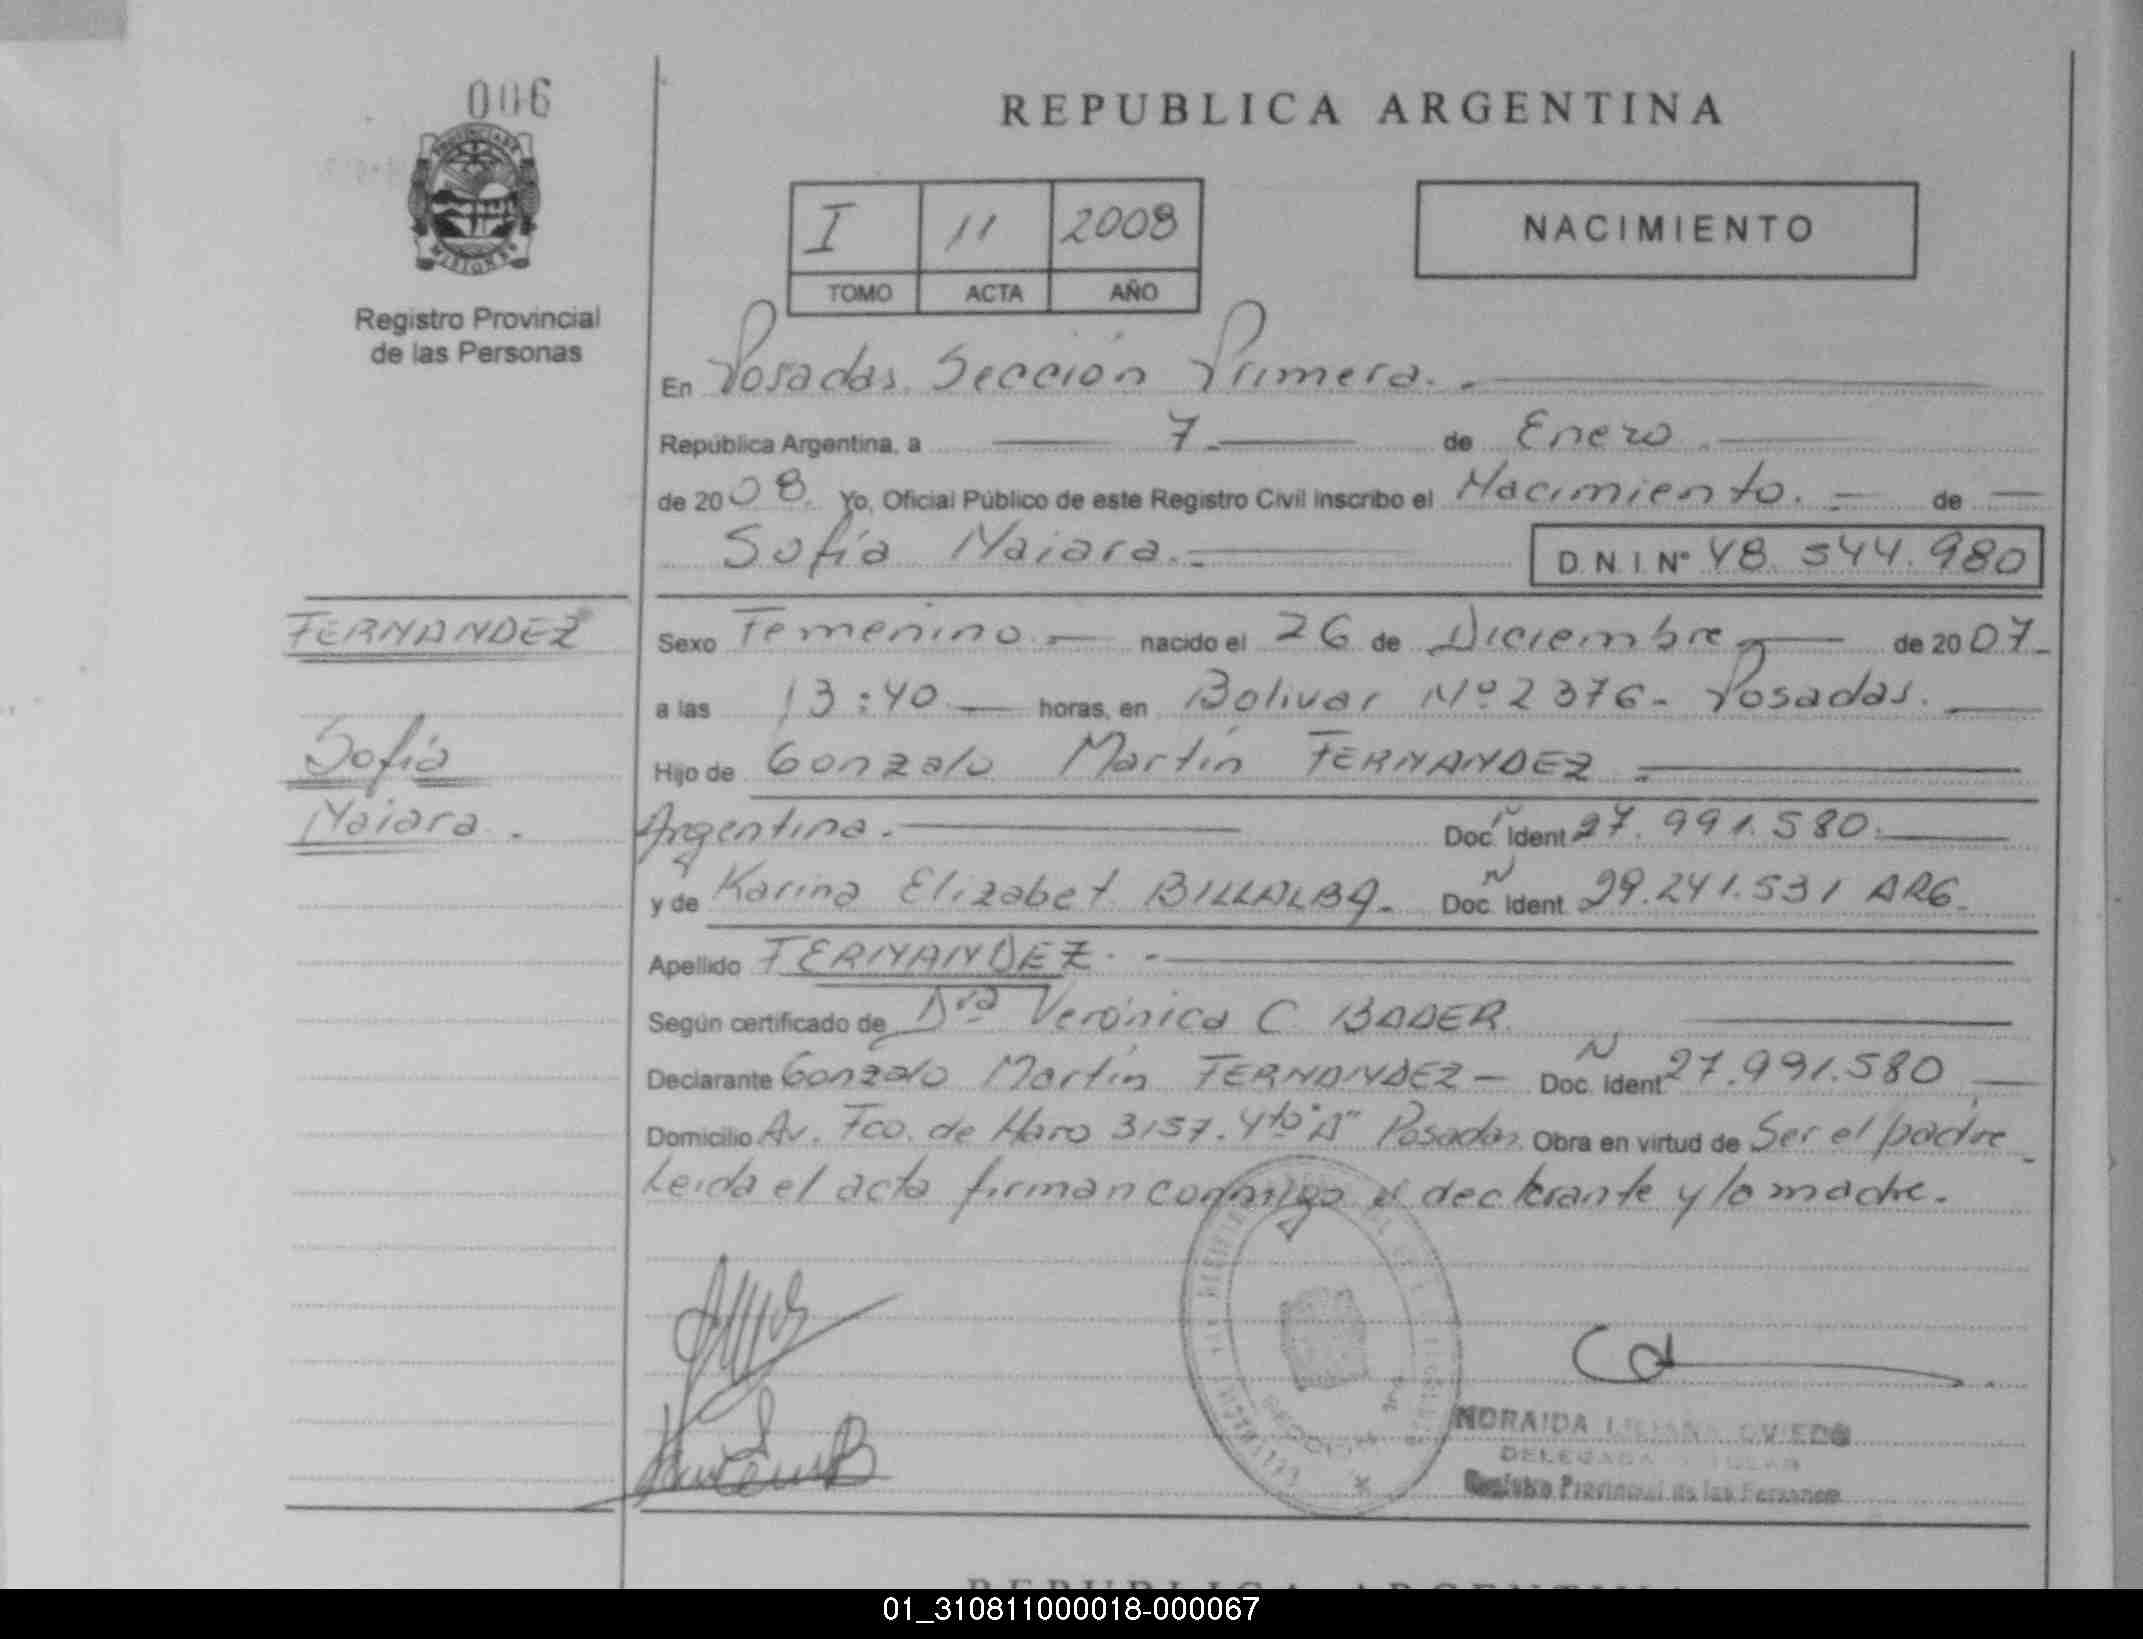 006
REPUBLICA ARGENTINA
I 11 2008
TOMO ACTA AÑO
NACIMIENTO
Registro Provincial
de las Personas
En Posadas. Sección Primera.
República Argentina, a 7 de Enero
de 2008. Yo, Oficial Público de este Registro Civil inscribo el Nacimiento. de
Sofía Naiara. D.N.I Nº 48.544.980
FERNANDEZ
Sofía
Naiara.
Sexo Femenino nacido el 26 de Diciembre de 2007
a las 13:40 horas, en Bolivar Nº 2376 - Posadas.
Hijo de Gonzalo Martín FERNANDEZ
Argentina. Doc. Ident 27.991.580.
y de Karina Elizabet BILLALBA. Doc. Ident. 29.241.531 ARG.
Apellido FERNANDEZ.
Según certificado de Dra Verónica C. BADER
Declarante Gonzalo Martín FERNANDEZ - Doc. Ident 27.991.580
Domicilio Av. Fco. de Haro 3157. 4to "A" Posadas. Obra en virtud de Ser el padre
Leida el acta firman conmigo el declarante y la madre.
SECCION
NORAIDA LILIANA OVIEDO
DELEGADA
Registro Provincial de las Personas
REPUBLICA ARGENTINA
01_310811000018-000067